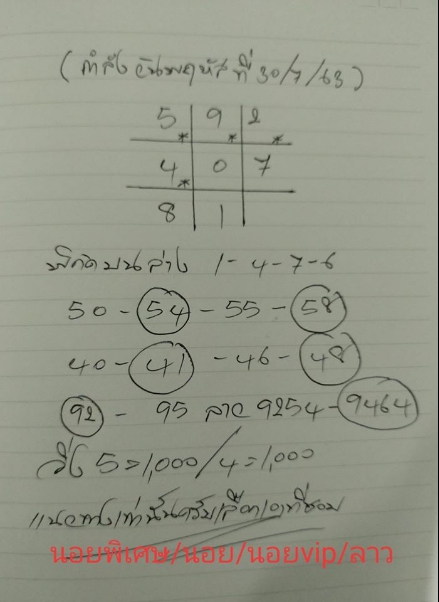 (กำลังวันพฤหัสที่ 30/7/63)
5 9 2
4 0 7
8 1
พิกัดบนล่าง 1-4-7-6
50-54-55-58
40-41-46-48
92-95 ลาว 9254-9464
วิ่ง 5=1,000/4=1,000
แนวทางเท่านั้นครับเลือกเอาที่ชอบ
นอยพิเศษ/นอย/นอยvip/ลาว